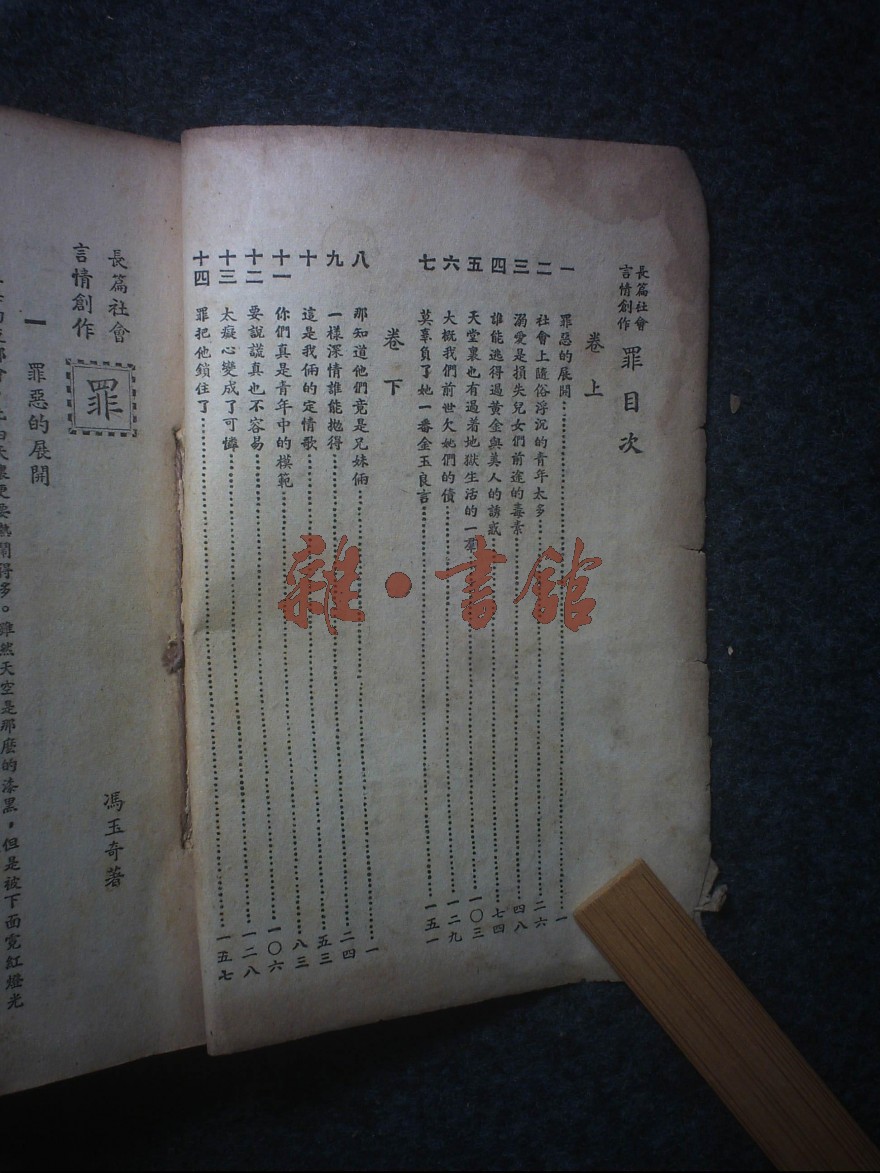 長篇社會
言情創作
罪目次
卷上
一 罪惡的展開 一
二 社會上隨俗浮沉的青年太多 二六
三 溺愛是損失兒女們前途的毒素 四八
四 誰能逃得過黃金與美人的誘惑 七四
五 天堂裏也有過着地獄生活的一羣 一〇三
六 大概我們前世欠她們的債 一二九
七 莫辜負了她一番金玉良言 一五一
卷下
八 那知道他們竟是兄妹倆 一
九 一樣深情誰能拋得 二四
十 這是我倆的定情歌 五三
十一 你們真是青年中的模範 八三
十二 要說謊真也不容易 一〇六
十三 太癡心變成了可憐 一二八
十四 罪把他鎖住了 一五七
長篇社會
言情創作
罪
馮玉奇著
一 罪惡的展開
更要熱鬧得多。雖然天空是那麼的漆黑,但是被下面霓紅燈光
雜·書館